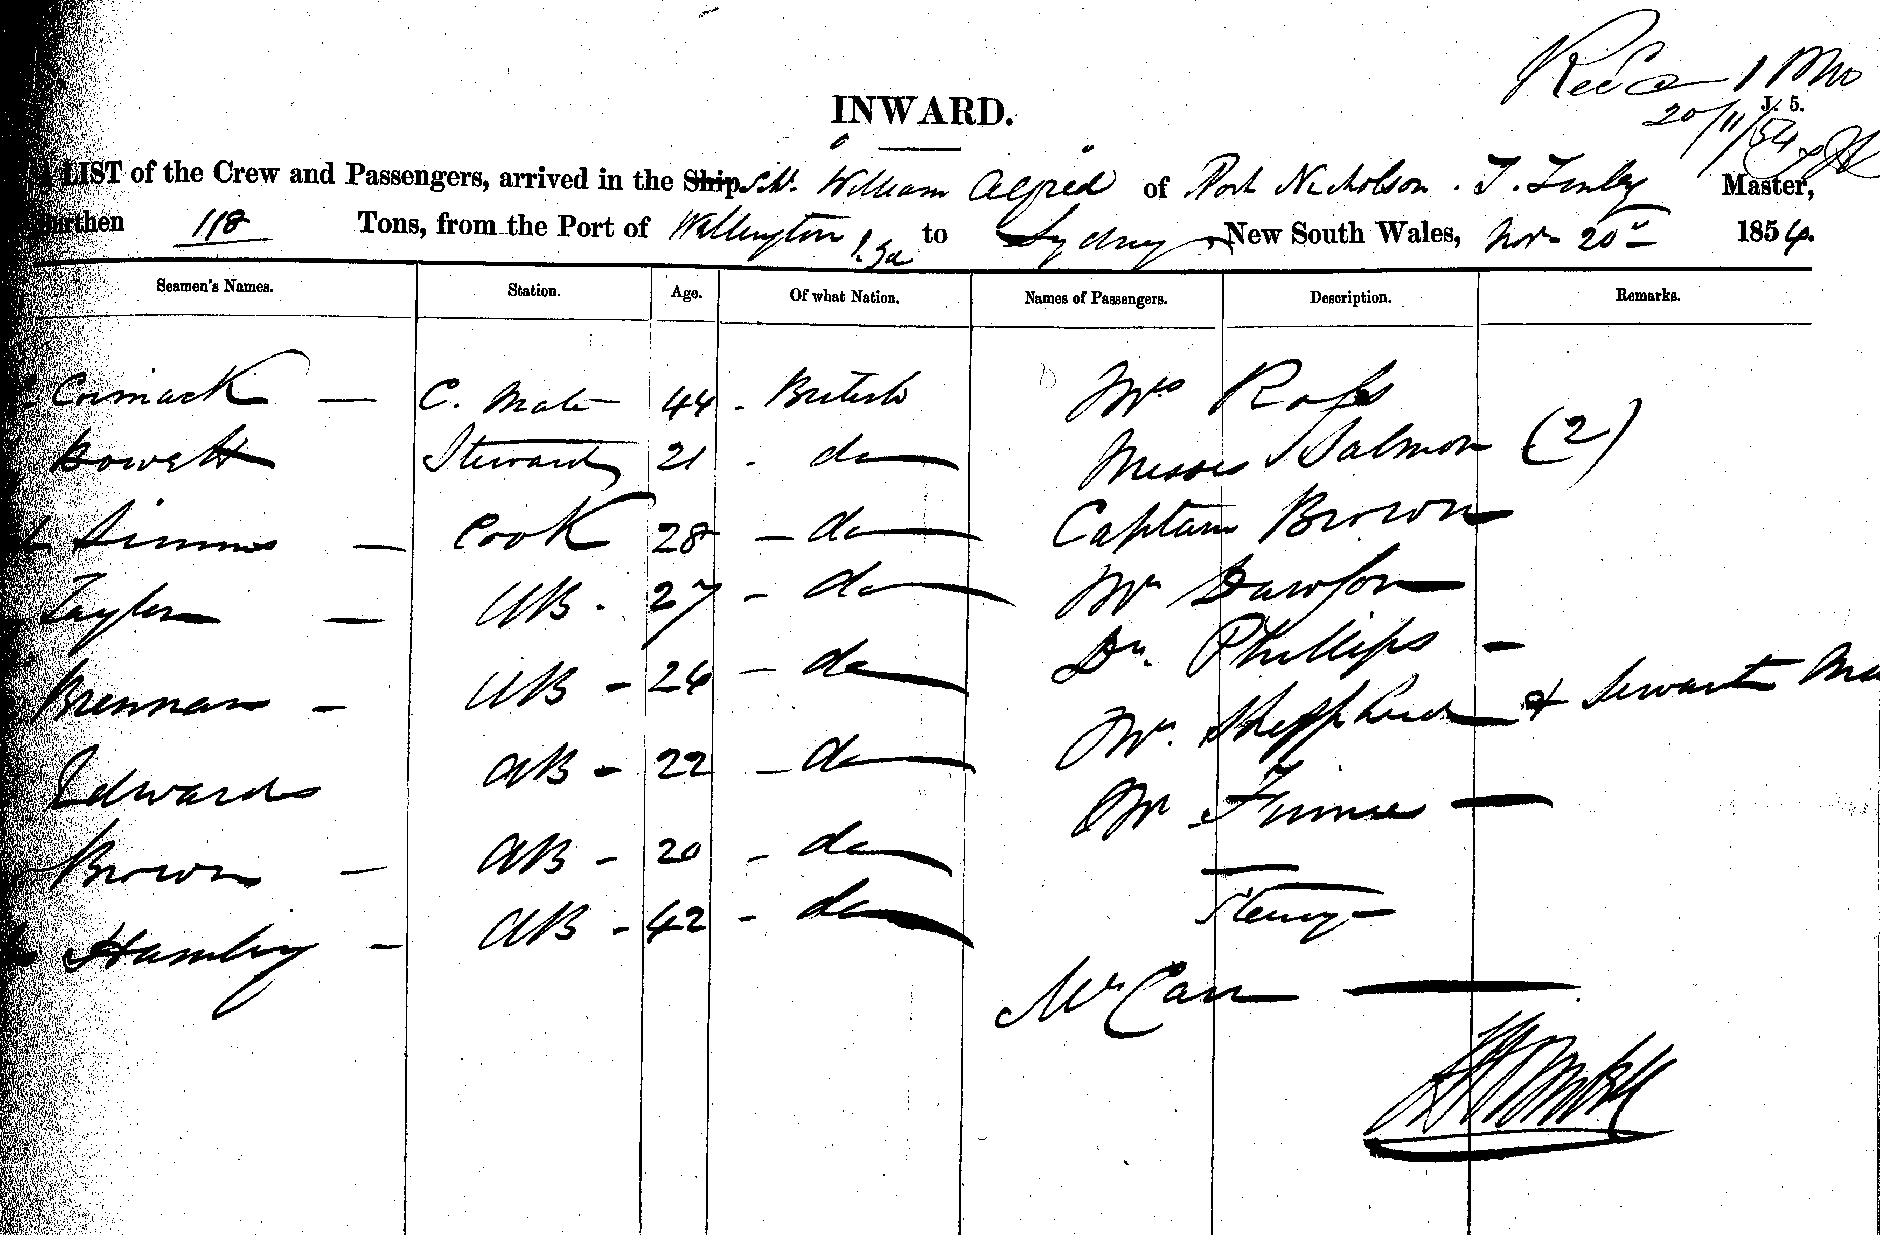 1 Mo
INWARD.
J. 5.
20/11/54
LIST of the Crew and Passengers, arrived in the Ship Sch. William Alfred of Port Nicholson. T. Tinley Master,
Burthen 118 Tons, from the Port of Wellington to Sydney New South Wales, Nov 20th 1854.
Seamen's Names. Station. Age. Of what Nation. Names of Passengers. Description. Remarks.
Cormack — C. Mate 44 - British Mrs Ross
Howett Steward 21 - do Misses Salmon (2)
Simms — Cook 28 - do Captain Brown
Taylor — AB. 27 - do Mr Dawson
Brennan - AB - 26 - do Dr. Phillips -
Edwards AB - 22 - do Mr. Shepherd & Servant
Brown - AB - 20 - do Mr
Hamby - AB - 42 - do Henry
Mr Carr